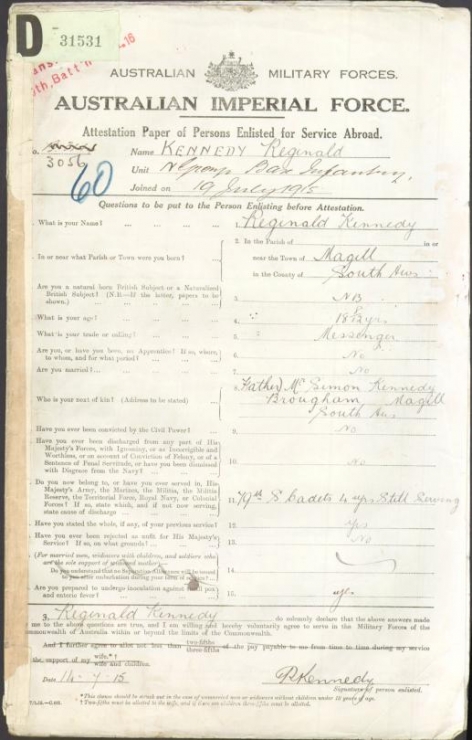 D
31531
AUSTRALIAN MILITARY FORCES.
AUSTRALIAN IMPERIAL FORCE.
Attestation Paper of Persons Enlisted for Service Abroad.
3056
Name KENNEDY Reginald
60
Unit Infantry,
Joined on 19 July 1915
Questions to be put to the Person Enlisting before Attestation.
What is your Name? ... ... ... 1. Reginald Kennedy
2. In the Parish of in or
In or near what Parish or Town were you born? ... near the Town of Magill
in the County of South Aus
Are you a natural born British Subject or a Naturalised
British Subject? (N.B.—If the latter, papers to be
shown.) ... 3. NB
What is your age? ... 4. 18
What is your trade or calling? ... 5. Messenger
Are you, or have you been, an Apprentice? If so, where,
to whom, and for what period? ... 6. No
Are you married? ... 7. No
8. Father Mr Simon Kennedy
Who is your next of kin? (Address to be stated) ... Brougham Magill
South Aus
Have you ever been convicted by the Civil Power? ... 9. No
Have you ever been discharged from any part of His
Majesty's Forces, with Ignominy, or as Incorrigible and
Worthless, or on account of Conviction of Felony, or of a
Sentence of Penal Servitude, or have you been dismissed
with Disgrace from the Navy? ... 10. No
Do you now belong to, or have you ever served in, His
Majesty's Army, the Marines, the Militia, the Militia
Reserve, the Territorial Force, Royal Navy, or Colonial
Forces? If so, state which, and if not now serving,
state cause of discharge ... 11. 79th S. Cadets 4 yrs Still Serving
Have you stated the whole, if any, of your previous service? 12. Yes
Have you ever been rejected as unfit for His Majesty's
Service? If so, on what grounds? ... 13. No
(For married men, widowers with children, and soldiers who
are the sole support of widowed mother)
Do you understand that no Separation Allowance will be issued
14.
Are you prepared to undergo inoculation against small pox
and enteric fever? 15. yes
I, Reginald Kennedy do solemnly declare that the above answers made
by me to the above questions are true, and I am willing and hereby voluntarily agree to serve in the Military Forces of the
Commonwealth of Australia within or beyond the limits of the Commonwealth.
And I further agree to allot not less than two-fifths three-fifths of the pay payable to me from time to time during my service
the support of my wife.*† wife and children.
Date 14-7-15 R Kennedy
Signature of person enlisted.